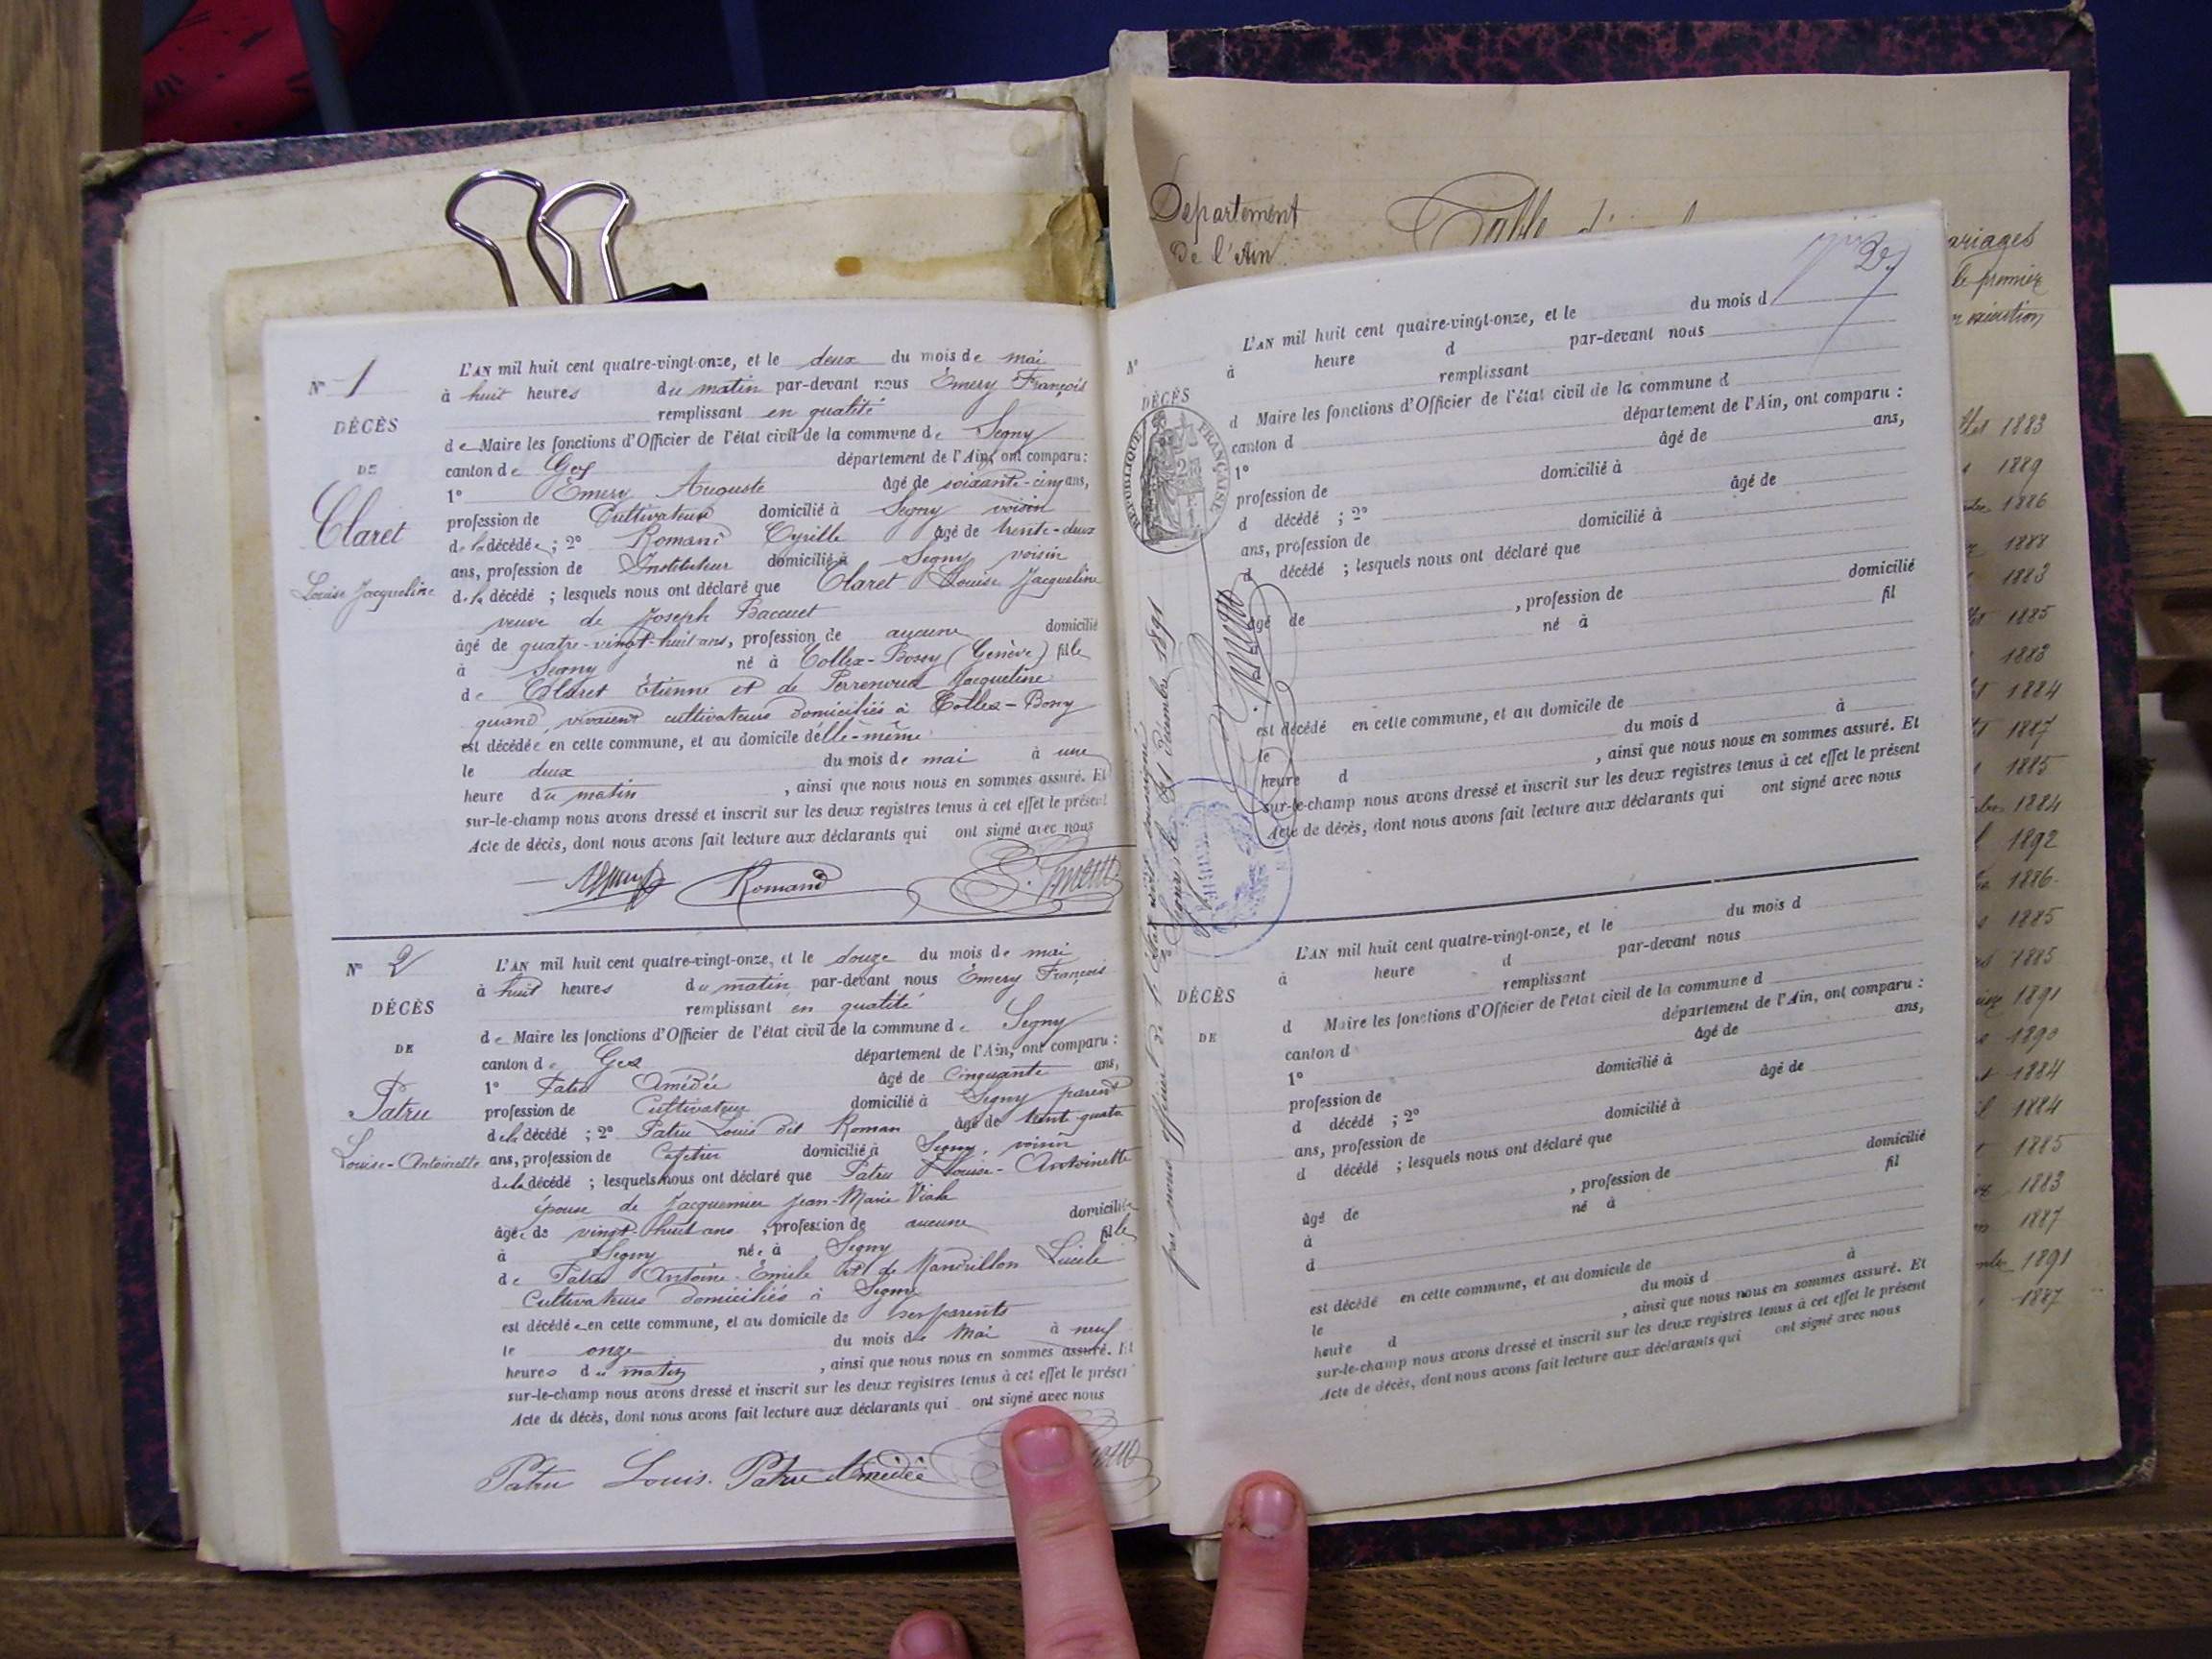 N° 1
DÉCÈS
DE
Claret
Louise Jacqueline
L'AN mil huit cent quatre-vingt-onze, et le deux du mois de mai
à huit heures du matin par-devant nous Émery François
remplissant en qualité
de Maire les fonctions d'Officier de l'état civil de la commune de Segny
canton de Gex département de l'Ain, ont comparu :
1° Émery Auguste âgé de soixante-cinq ans,
profession de Cultivateur domicilié à Segny voisin
de la décédée ; 2° Romand Cyrille âgé de trente-deux
ans, profession de Instituteur domicilié à Segny voisin
de la décédé ; lesquels nous ont déclaré que Claret Louise Jacqueline
veuve de Joseph Baccuet
âgé de quatre-vingt-huit ans, profession de aucune domicilié
à Segny né à Collex-Bossy (Genève) fille
de Claret Étienne et de Perrenoud Jacqueline
quand vivaient cultivateurs domiciliés à Collex-Bossy
est décédée en cette commune, et au domicile d'elle-même
le deux du mois de mai à une
heure du matin , ainsi que nous nous en sommes assuré. Et
sur-le-champ nous avons dressé et inscrit sur les deux registres tenus à cet effet le présent
Acte de décès, dont nous avons fait lecture aux déclarants qui ont signé avec nous
Romand
N° 2
DÉCÈS
DE
Patru
Louise-Antoinette
L'AN mil huit cent quatre-vingt-onze, et le douze du mois de mai
à huit heures du matin par-devant nous Émery François
remplissant en qualité
de Maire les fonctions d'Officier de l'état civil de la commune de Segny
canton de Gex département de l'Ain, ont comparu :
1° Patru Amédée âgé de Cinquante ans,
profession de Cultivateur domicilié à Segny parent
de la décédé ; 2° Patru Louis dit Roman âgé de trent-quatre
ans, profession de Cafetier domicilié à Segny, voisin
de la décédé ; lesquels nous ont déclaré que Patru Louise-Antoinette
épouse de Jacquemier Jean-Marie Viale
âgée de vingt-huit ans , profession de aucune domiciliée
à Segny née à Segny fille
de Patru Antoine-Émile et de Mandrillon Lucile
Cultivateurs domiciliés à Segny
est décédée en cette commune, et au domicile de ses parents
le onze du mois de Mai à neuf
heures du matin , ainsi que nous nous en sommes assuré. Et
sur-le-champ nous avons dressé et inscrit sur les deux registres tenus à cet effet le présent
Acte de décès, dont nous avons fait lecture aux déclarants qui ont signé avec nous
Patru Louis. Patru Amédée
Département
de l'Ain
Table
ariages
le premier
1883
1889
1886
1888
1883
1885
1883
1884
1887
1885
1884
1892
1886
1885
1885
1891
1890
1884
1884
1885
1883
1887
1891
1887
N°
DÉCÈS
RÉPUBLIQUE FRANÇAISE
L'AN mil huit cent quatre-vingt-onze, et le du mois d
à heure d par-devant nous
remplissant
d Maire les fonctions d'Officier de l'état civil de la commune d
canton d département de l'Ain, ont comparu :
1° âgé de ans,
profession de domicilié à
d décédé ; 2° âgé de
ans, profession de domicilié à
d décédé ; lesquels nous ont déclaré que
âgé de , profession de domicilié
né à fil
est décédé en cette commune, et au domicile de
le du mois d à
heure d , ainsi que nous nous en sommes assuré. Et
sur-le-champ nous avons dressé et inscrit sur les deux registres tenus à cet effet le présent
Acte de décès, dont nous avons fait lecture aux déclarants qui ont signé avec nous
par nous Officier de l'état civil soussigné
Segny le 31 décembre 1891
DÉCÈS
DE
L'AN mil huit cent quatre-vingt-onze, et le du mois d
à heure d par-devant nous
remplissant
d Maire les fonctions d'Officier de l'état civil de la commune d
canton d département de l'Ain, ont comparu :
1° âgé de ans,
profession de domicilié à
d décédé ; 2° âgé de
ans, profession de domicilié à
d décédé ; lesquels nous ont déclaré que
âgé de , profession de domicilié
à né à fil
d
est décédé en cette commune, et au domicile de
le du mois d à
heure d , ainsi que nous nous en sommes assuré. Et
sur-le-champ nous avons dressé et inscrit sur les deux registres tenus à cet effet le présent
Acte de décès, dont nous avons fait lecture aux déclarants qui ont signé avec nous